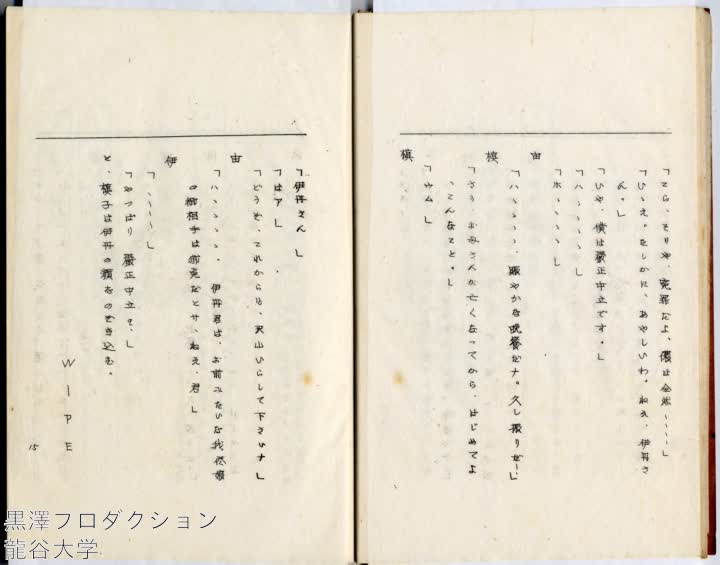 「こら、そりや、冤罪だよ、僕は全然⋯⋯」
「ひゝえ。たしかに、あやしいわ。ねえ、伊丹さ
ん。」
「いや、僕は嚴正中立です。」
「ハ、、、、、」
「ホ、、、、、」
宙
「ハ、、、、、賑やかな晩餐だナ。久し振りだ⋯」
槙
「さう、お母さんが亡くなってから、はじめてよ
、こんなこと。」
「ウム」
槙
「伊丹さん」
「はア」
「どうぞ、これからも、沢山いらして下さいナ」
宙
「ハ、、、、、伊丹君は、お前みたいな我儘娘
の御相手は御免だとサ、ねえ、君。」
伊
「、、、、」
「やっぱり嚴正中立ネ、」
と、槙子は伊丹の顔をのぞき込む。
WIPE
15
黒澤プロダクション
龍谷大学